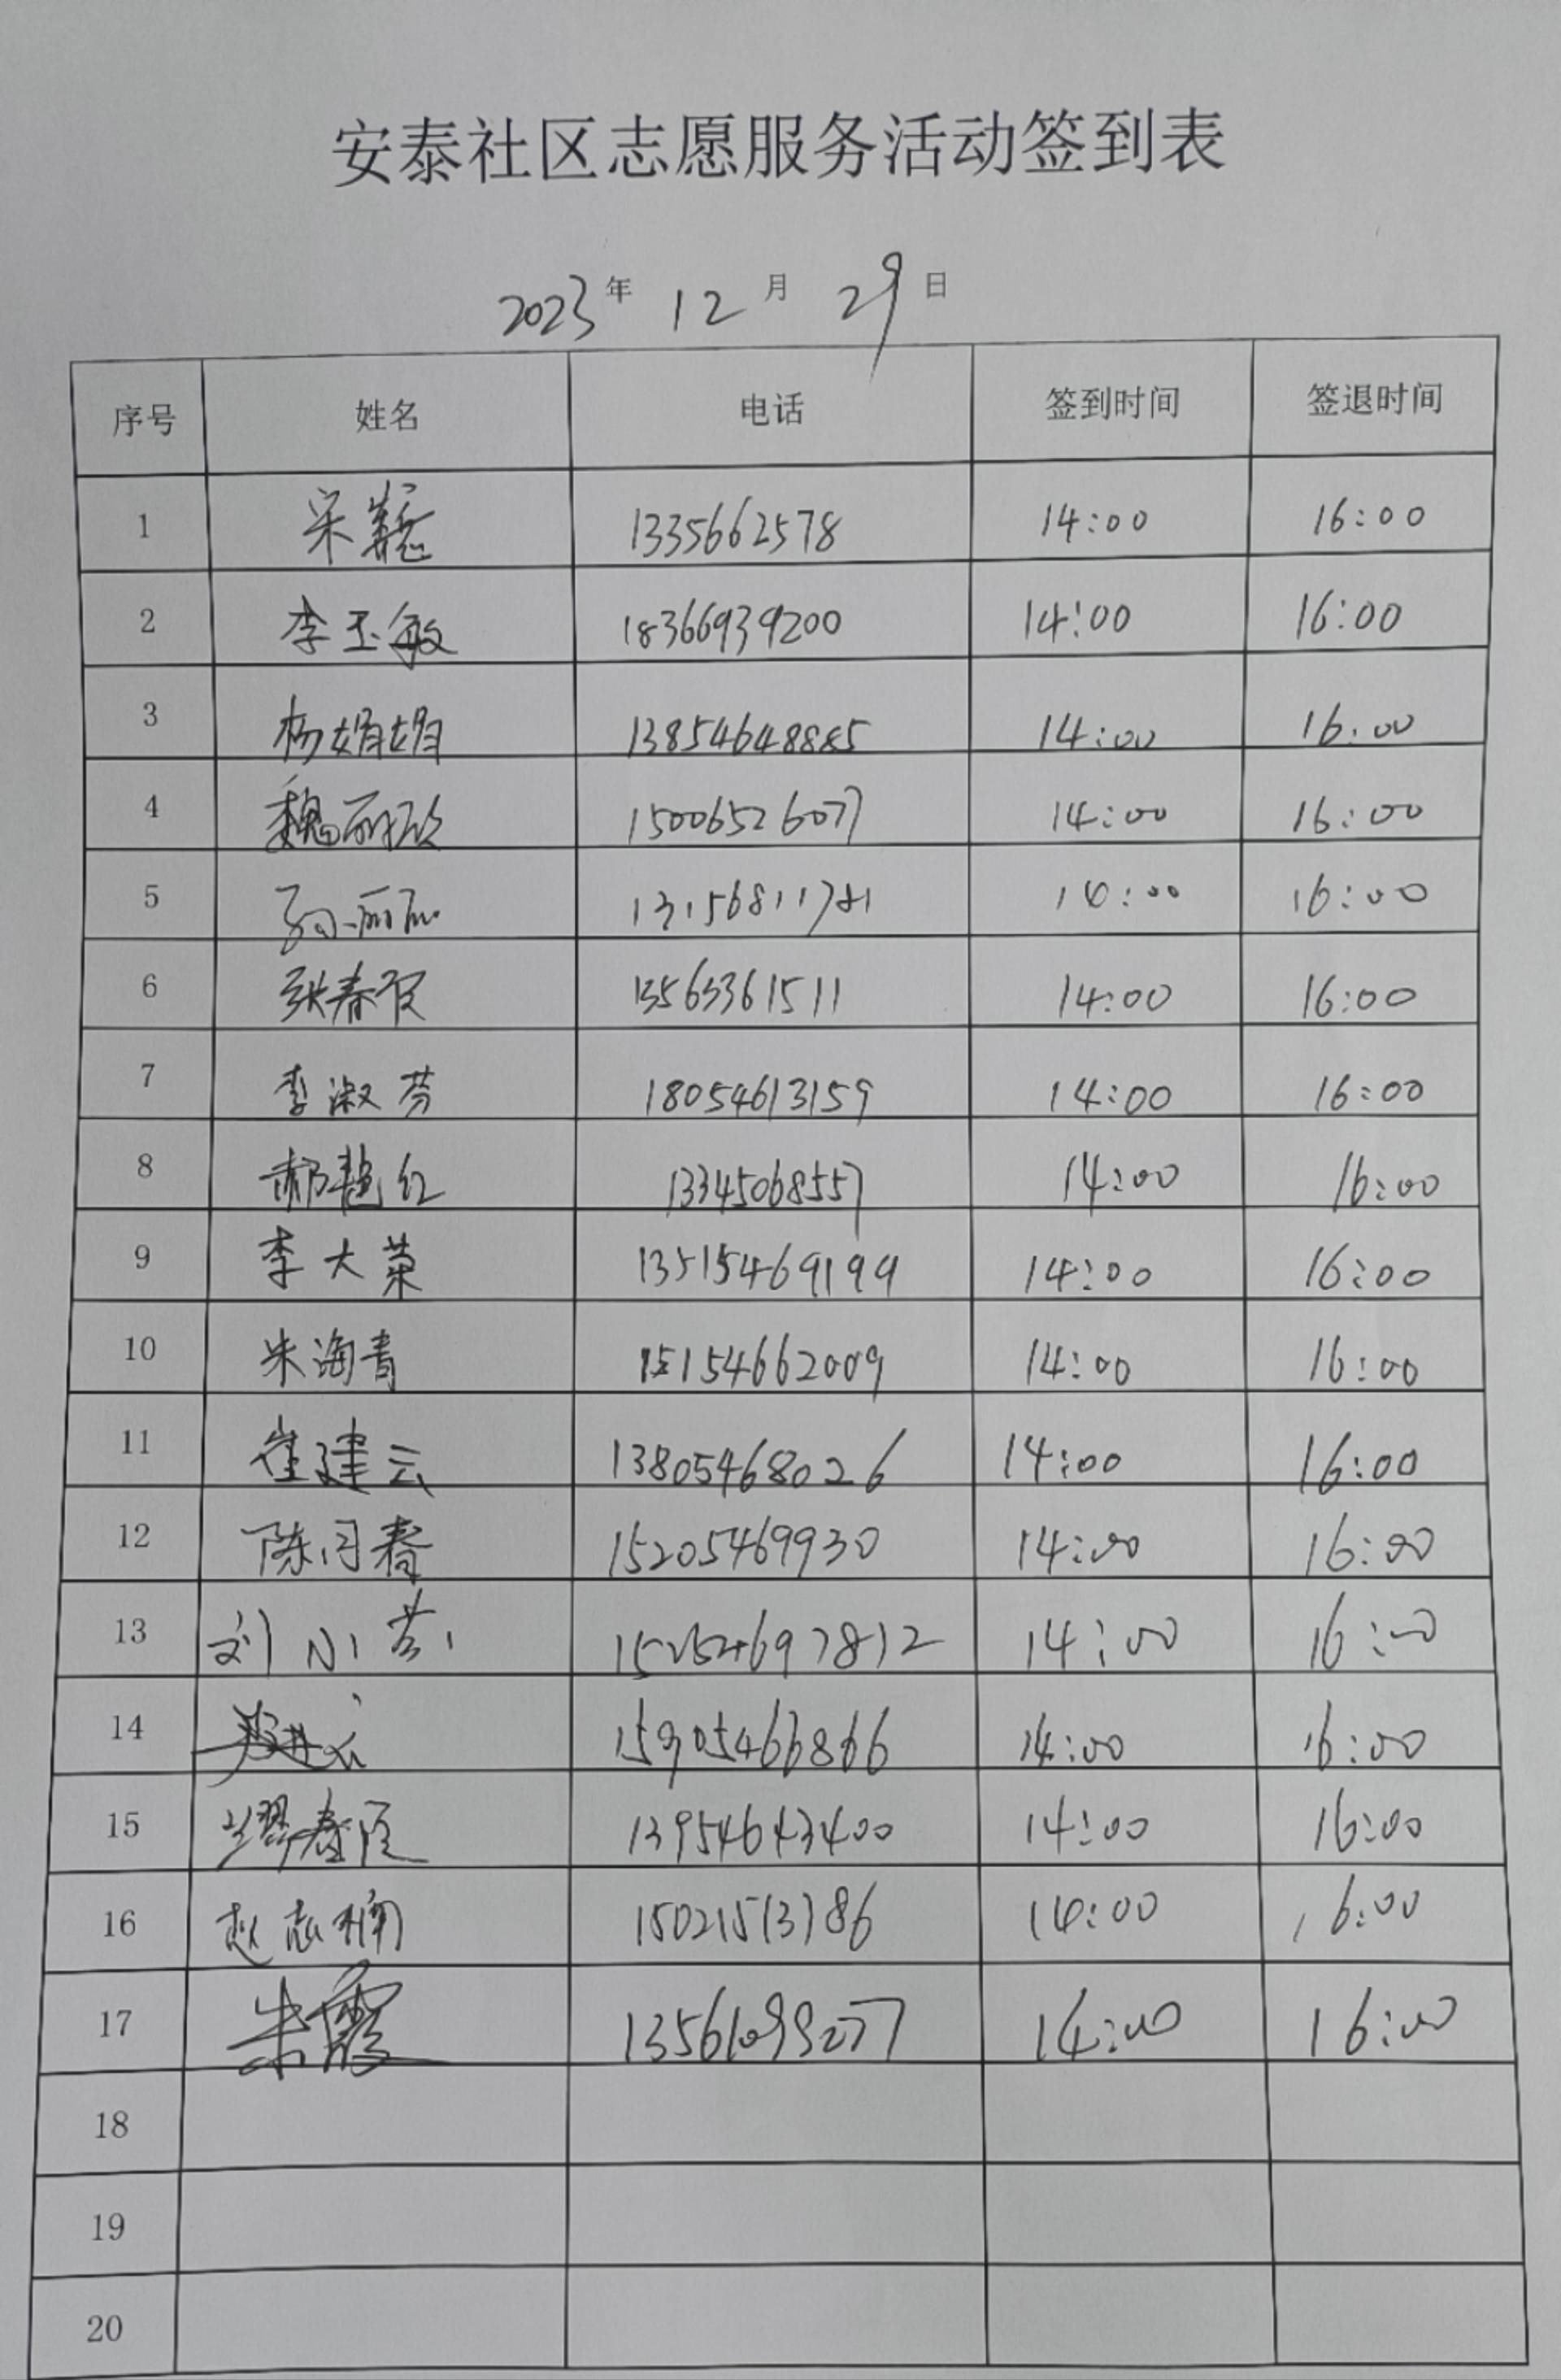 安泰社区志愿服务活动签到表
2023年 12月 29日
序号 姓名 电话 签到时间 签退时间
1 宋 1335662578 14:00 16:00
2 李玉敏 18366939200 14:00 16:00
3 杨娟娟 13854648885 14:00 16:00
4 魏丽欣 15006526077 14:00 16:00
5 孙丽丽 13156811781 14:00 16:00
6 张春 13563361511 14:00 16:00
7 李淑芬 18054613159 14:00 16:00
8 郝艳红 13345068557 14:00 16:00
9 李大荣 13515469199 14:00 16:00
10 朱海青 15154662009 14:00 16:00
11 崔建云 13805468026 14:00 16:00
12 陈同春 15205469930 14:00 16:00
13 刘小 14:00 16:00
14 15905466866 14:00 16:00
15 13954643400 14:00 16:00
16 赵志 15021513786 14:00 16:00
17 朱霞 13561099277 14:00 16:00
18
19
20